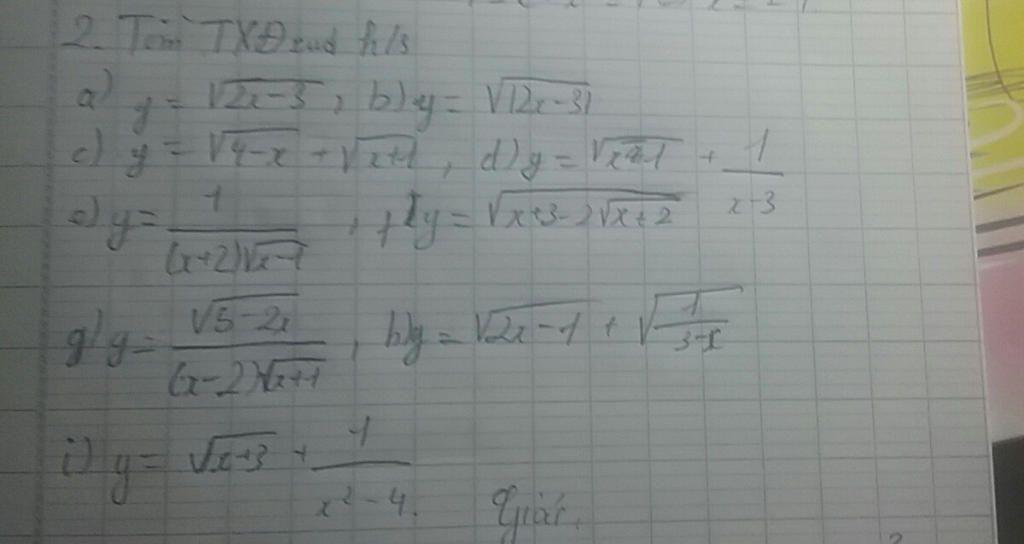 2. Tìm TXĐ của h/s
a) y = √(2x-3), b) y = √(|2x-3|)
c) y = √(4-x) + √(x+1), d) y = √(x-1) + 1/(x-3)
e) y = 1/((x+2)√(x-1)), f) y = √(x+3-2√(x+2))
g) y = √(5-2x)/((x-2)√(x+1)), h) y = √(2x-1) + √(1/(3-x))
i) y = √(x+3) + 1/(x²-4). Giải.